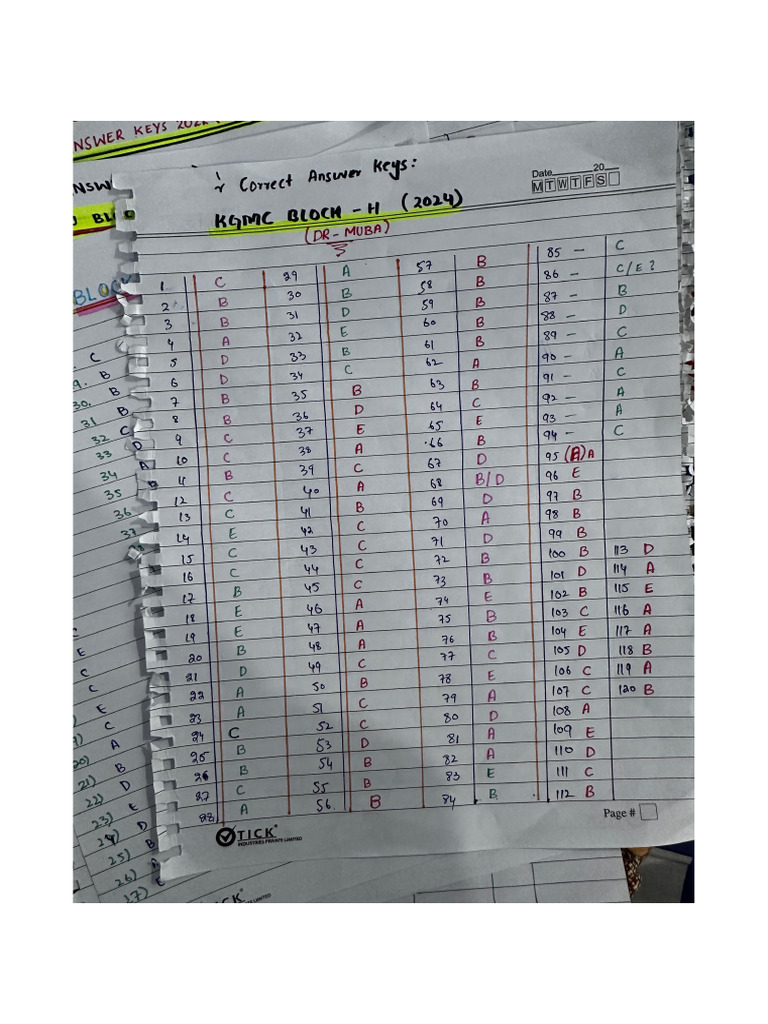 NSWER KEYS 202
NSW
BLO
BLOCK
Correct Answer Keys:
KGMC BLOCK - H (2024)
(DR - MUBA)
Date 20
M T W T F S
1 C
2 B
3 B
4 A
5 D
6 D
7 B
8 B
9 C
10 C
11 B
12 C
13 C
14 E
15 C
16 C
17 B
18 E
19 E
20 B
21 D
22 A
23 A
24 C
25 B
26 B
27 C
28 A
29 A
30 B
31 D
32 E
33 B
34 C
35 B
36 D
37 E
38 A
39 C
40 A
41 B
42 C
43 C
44 C
45 C
46 A
47 A
48 A
49 C
50 B
51 C
52 C
53 D
54 B
55 B
56. B
57 B
58 B
59 B
60 B
61 B
62 A
63 B
64 C
65 E
66 B
67 D
68 B/D
69 D
70 A
71 D
72 B
73 B
74 E
75 B
76 B
77 C
78 E
79 A
80 D
81 A
82 A
83 E
84 B
85 - C
86 - C/E?
87 - B
88 - D
89 - C
90 - A
91 - C
92 - A
93 - A
94 - C
95 (A) A
96 E
97 B
98 B
99 B
100 B
101 D
102 B
103 C
104 E
105 D
106 C
107 C
108 A
109 E
110 D
111 C
112 B
113 D
114 A
115 E
116 A
117 A
118 B
119 A
120 B
TICK
INDUSTRIES PRIVATE LIMITED
Page #
C
B
30. B
31 B
32 C
33 D
34 A
35 B
36
37
E
C
C
E
C
20) A
21) B
22) D
23) E
24) D
25) B
26) A
27) E